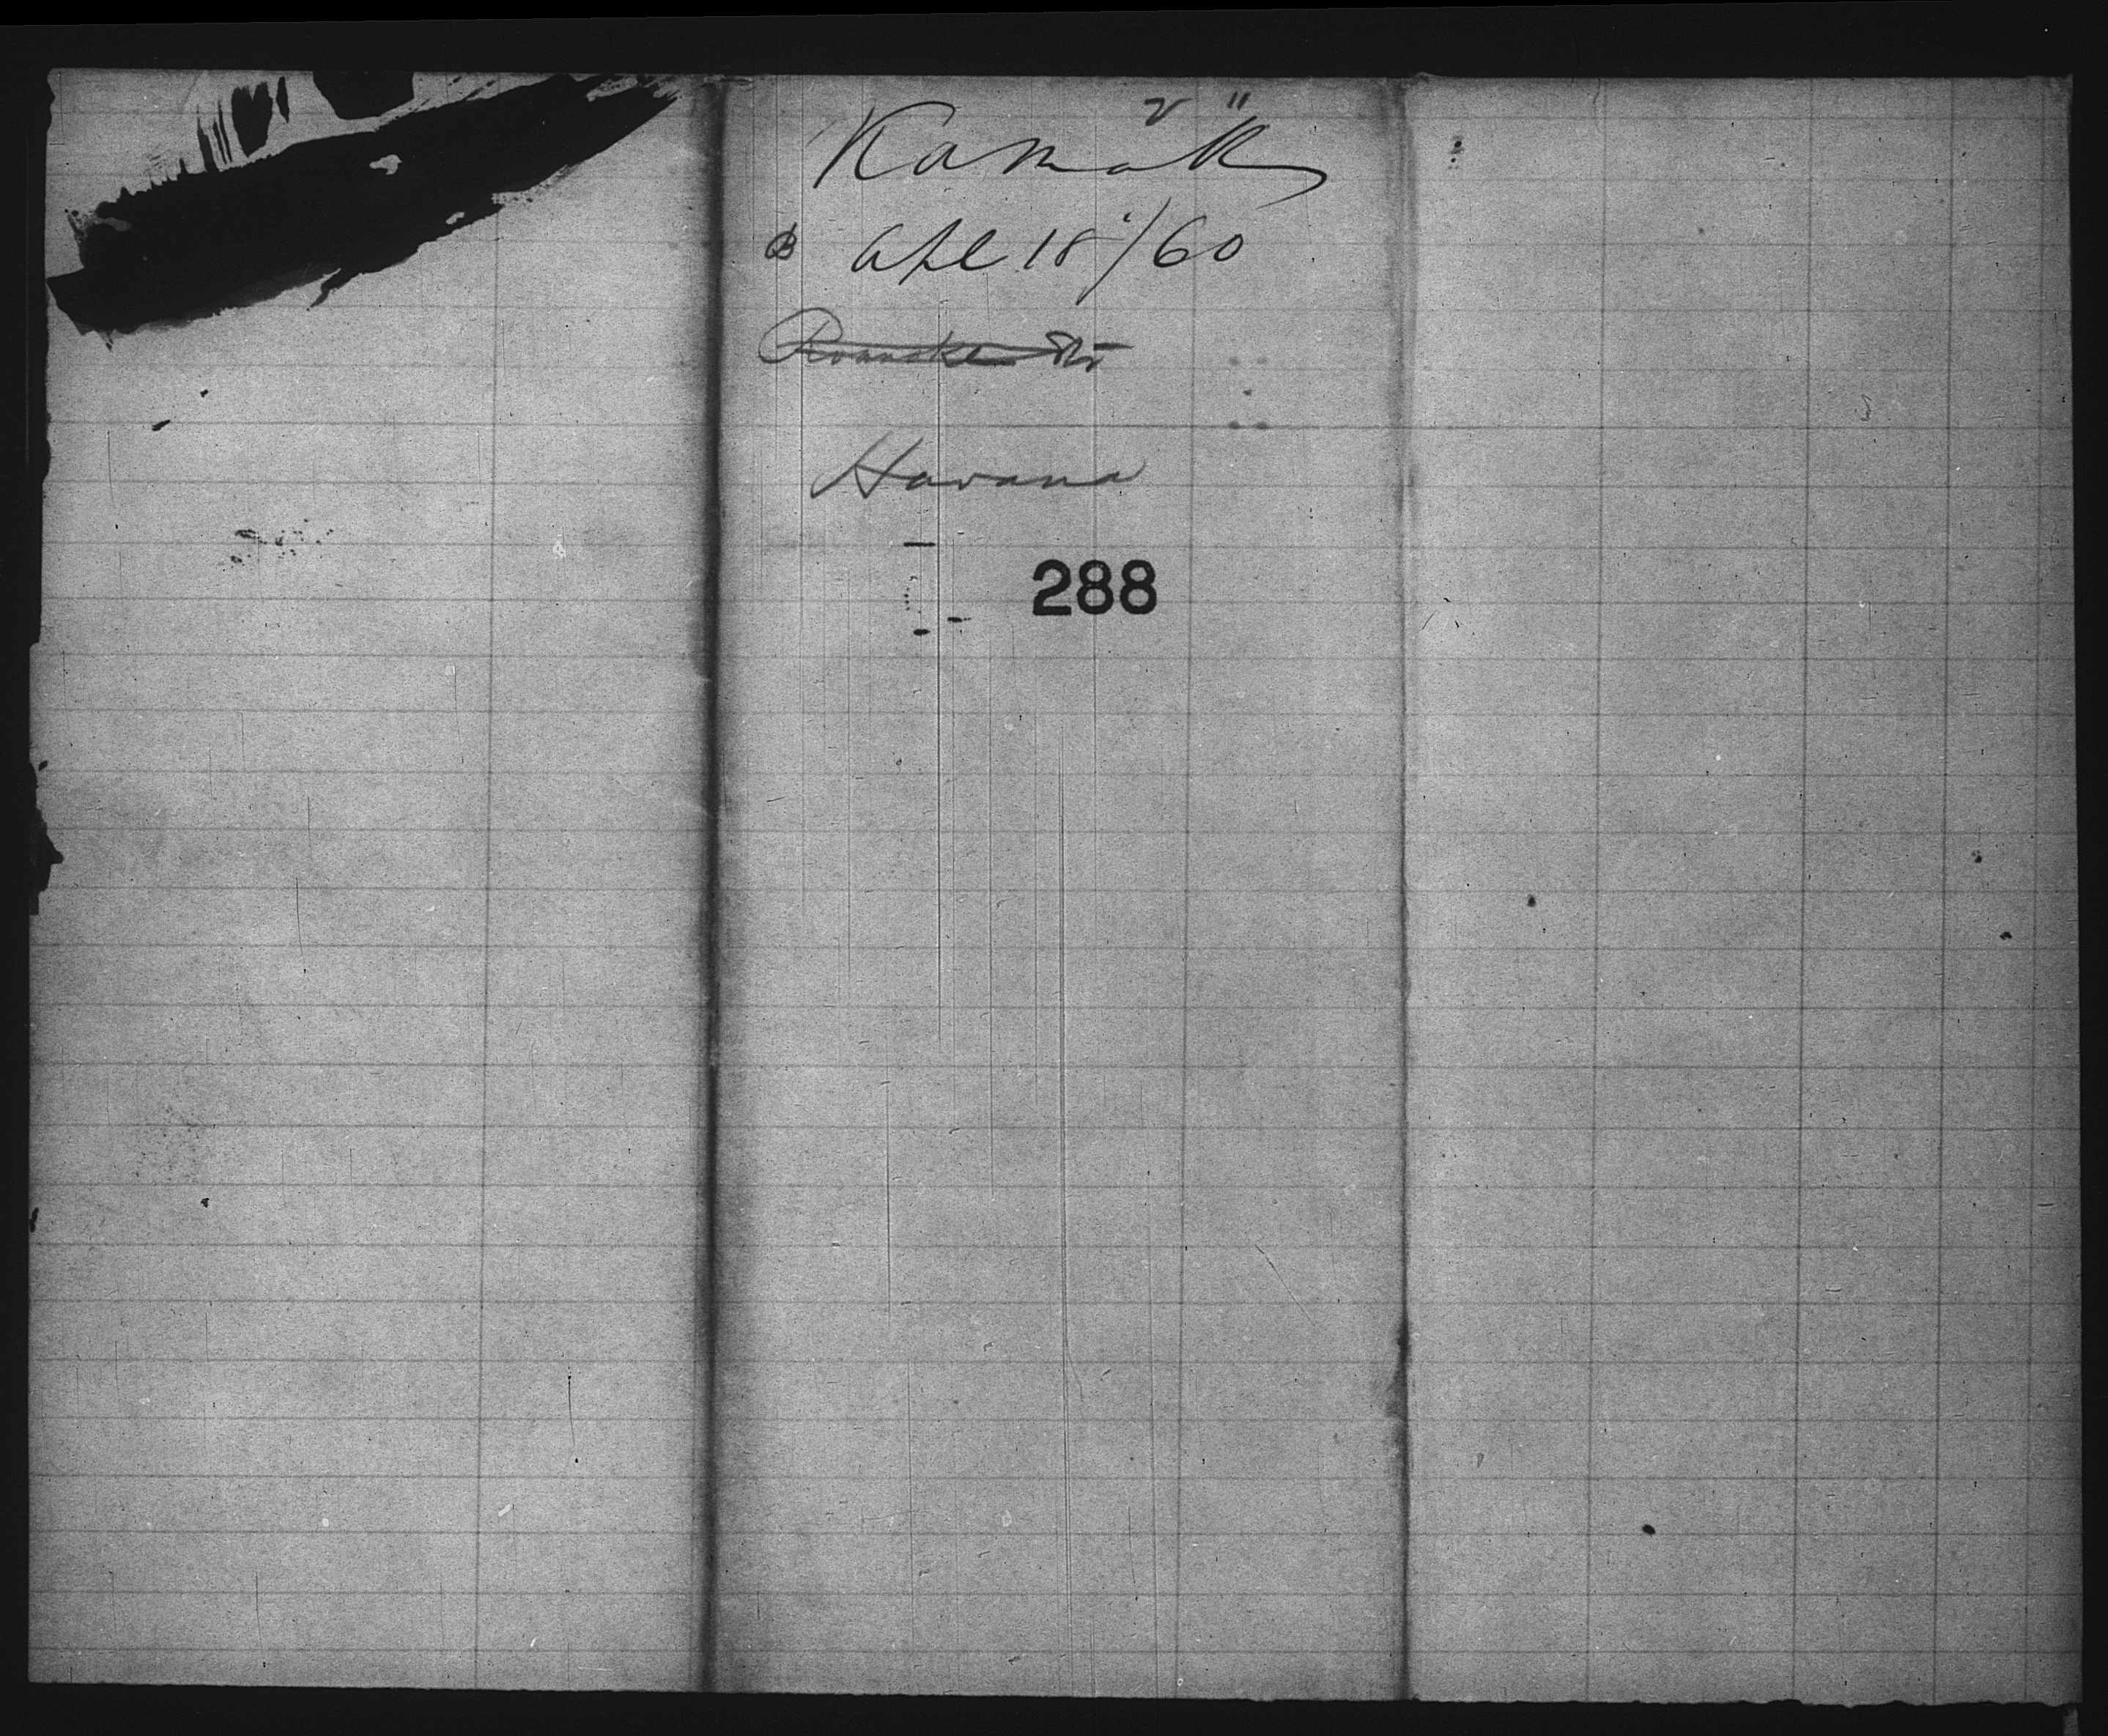 Karnak
B Apl 18/60
Roanoke Str
Havana
288